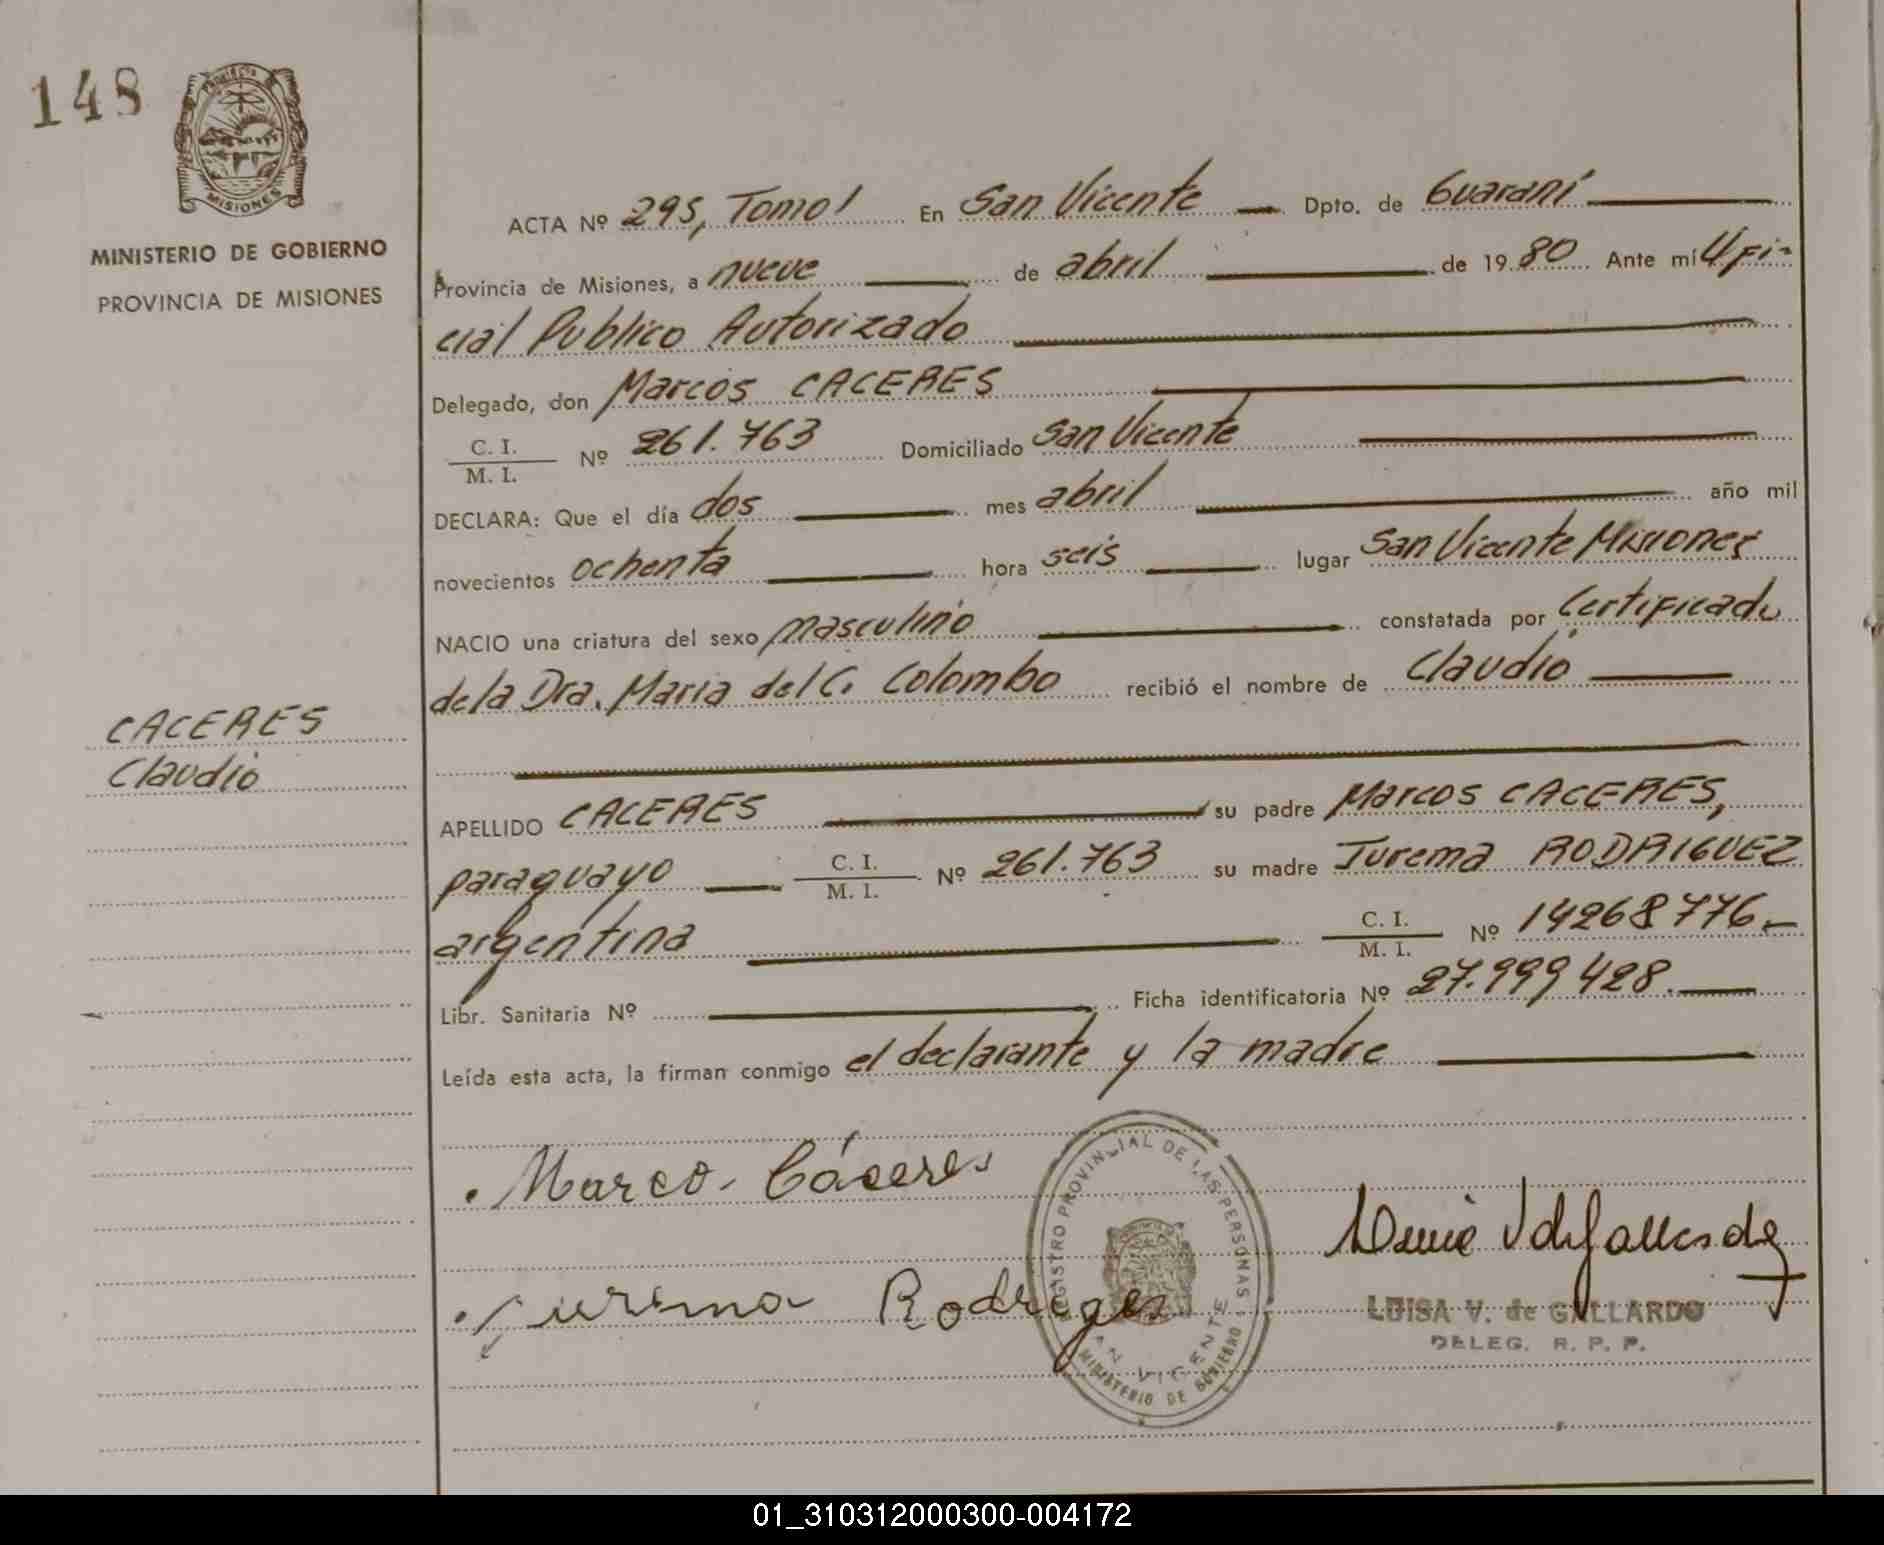 148
MISIONES
MINISTERIO DE GOBIERNO
PROVINCIA DE MISIONES
CACERES
Claudio
ACTA Nº 295, Tomo I En San Vicente Dpto. de Guaraní
Provincia de Misiones, a nueve de abril de 1980 Ante mí Ofi-
cial Publico Autorizado
Delegado, don Marcos CACERES
C. I.
M. I. Nº 261.763 Domiciliado San Vicente
DECLARA: Que el día dos mes abril año mil
novecientos ochenta hora seis lugar San Vicente Misiones
NACIO una criatura del sexo masculino constatada por Certificado
de la Dra. Maria del C. Colombo recibió el nombre de Claudio
APELLIDO CACERES su padre Marcos CACERES,
paraguayo C. I. M. I. Nº 261.763 su madre Jurema RODRIGUEZ
argentina C. I. M. I. Nº 14268776.-
Libr. Sanitaria Nº Ficha identificatoria Nº 27.999428.
Leída esta acta, la firman conmigo el declarante y la madre
Marco. Cáceres
REGISTRO PROVINCIAL DE LAS PERSONAS
SAN VICENTE
MINISTERIO DE GOBIERNO
Jurema Rodriges
LUISA V. de GALLARDO
DELEG. R. P. P.
01_310312000300-004172